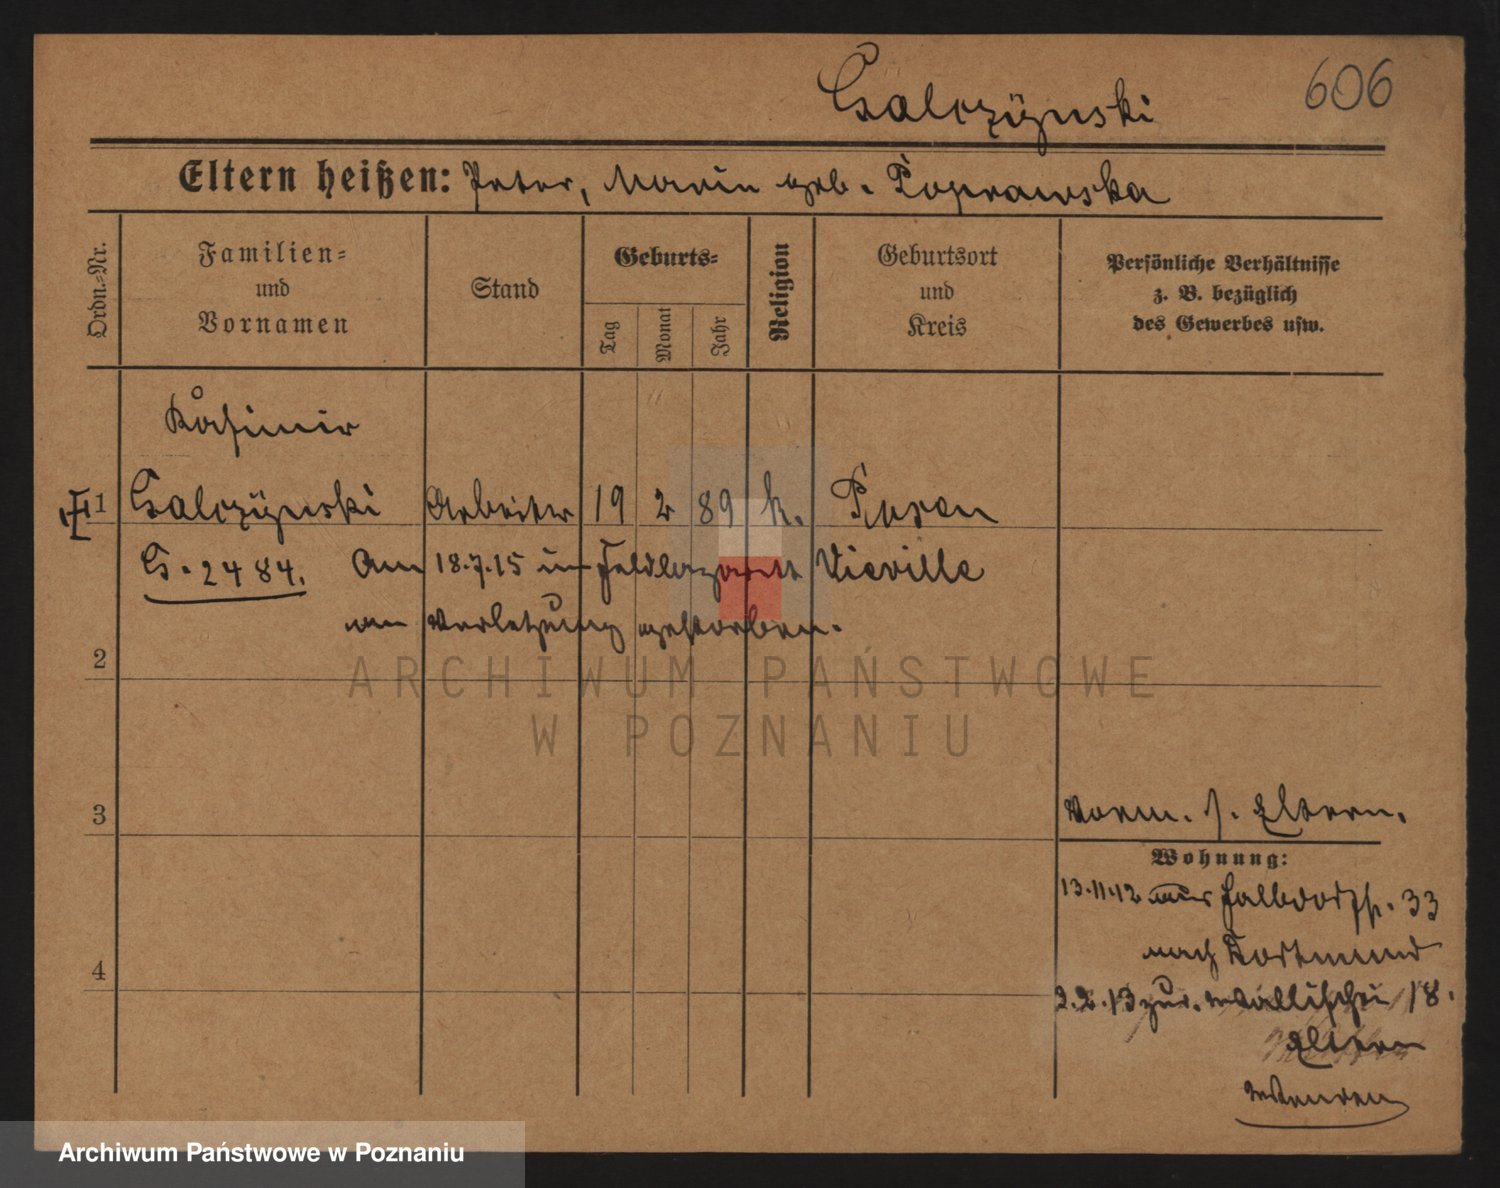 Galczÿnski 606
Eltern heißen: Peter, Maria geb. Poprawska
Ordn.-Nr.
Familien-
und
Vornamen
Stand
Geburts-
Tag
Monat
Jahr
Religion
Geburtsort
und
Kreis
Persönliche Verhältnisse
z. B. bezüglich
des Gewerbes usw.
Kasimir
1 Galczÿnski Arbeiter 19 2 89 k. Posen
G. 2484. Am 18.7.15 im Feldlazarett Vieville
an Verletzung gestorben.
2
3
Vorm. s. Eltern.
Wohnung:
13.11.12 aus Halbdorfstr. 33
nach Dortmund
4
2.2.13 zur. Wallischei 18.
Eltern
Wenden
ARCHIWUM PAŃSTWOWE
W POZNANIU
Archiwum Państwowe w Poznaniu